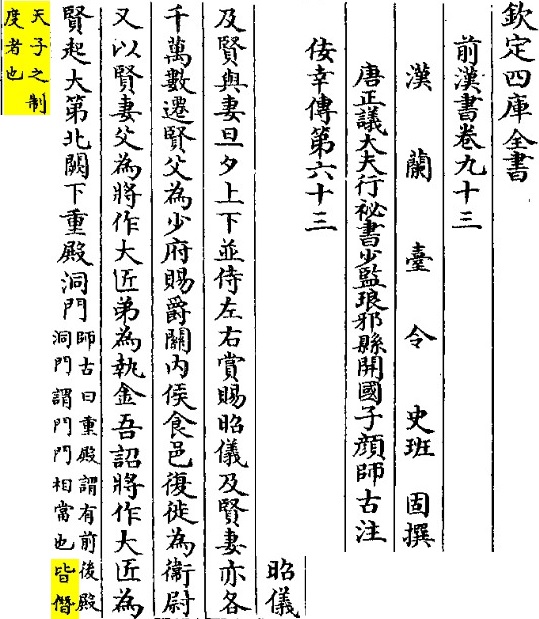 欽定四庫全書
前漢書卷九十三
漢蘭臺令史班固撰
唐正議大夫行祕書少監琅邪縣開國子顏師古注
佞幸傳第六十三
昭儀
及賢與妻旦夕上下並侍左右賞賜昭儀及賢妻亦各
千萬數遷賢父為少府賜爵關內侯食邑復徙為衛尉
又以賢妻父為將作大匠弟為執金吾詔將作大匠為
賢起大第北闕下重殿洞門
師古曰重殿謂有前後殿
洞門謂門門相當也皆僭
天子之制
度者也